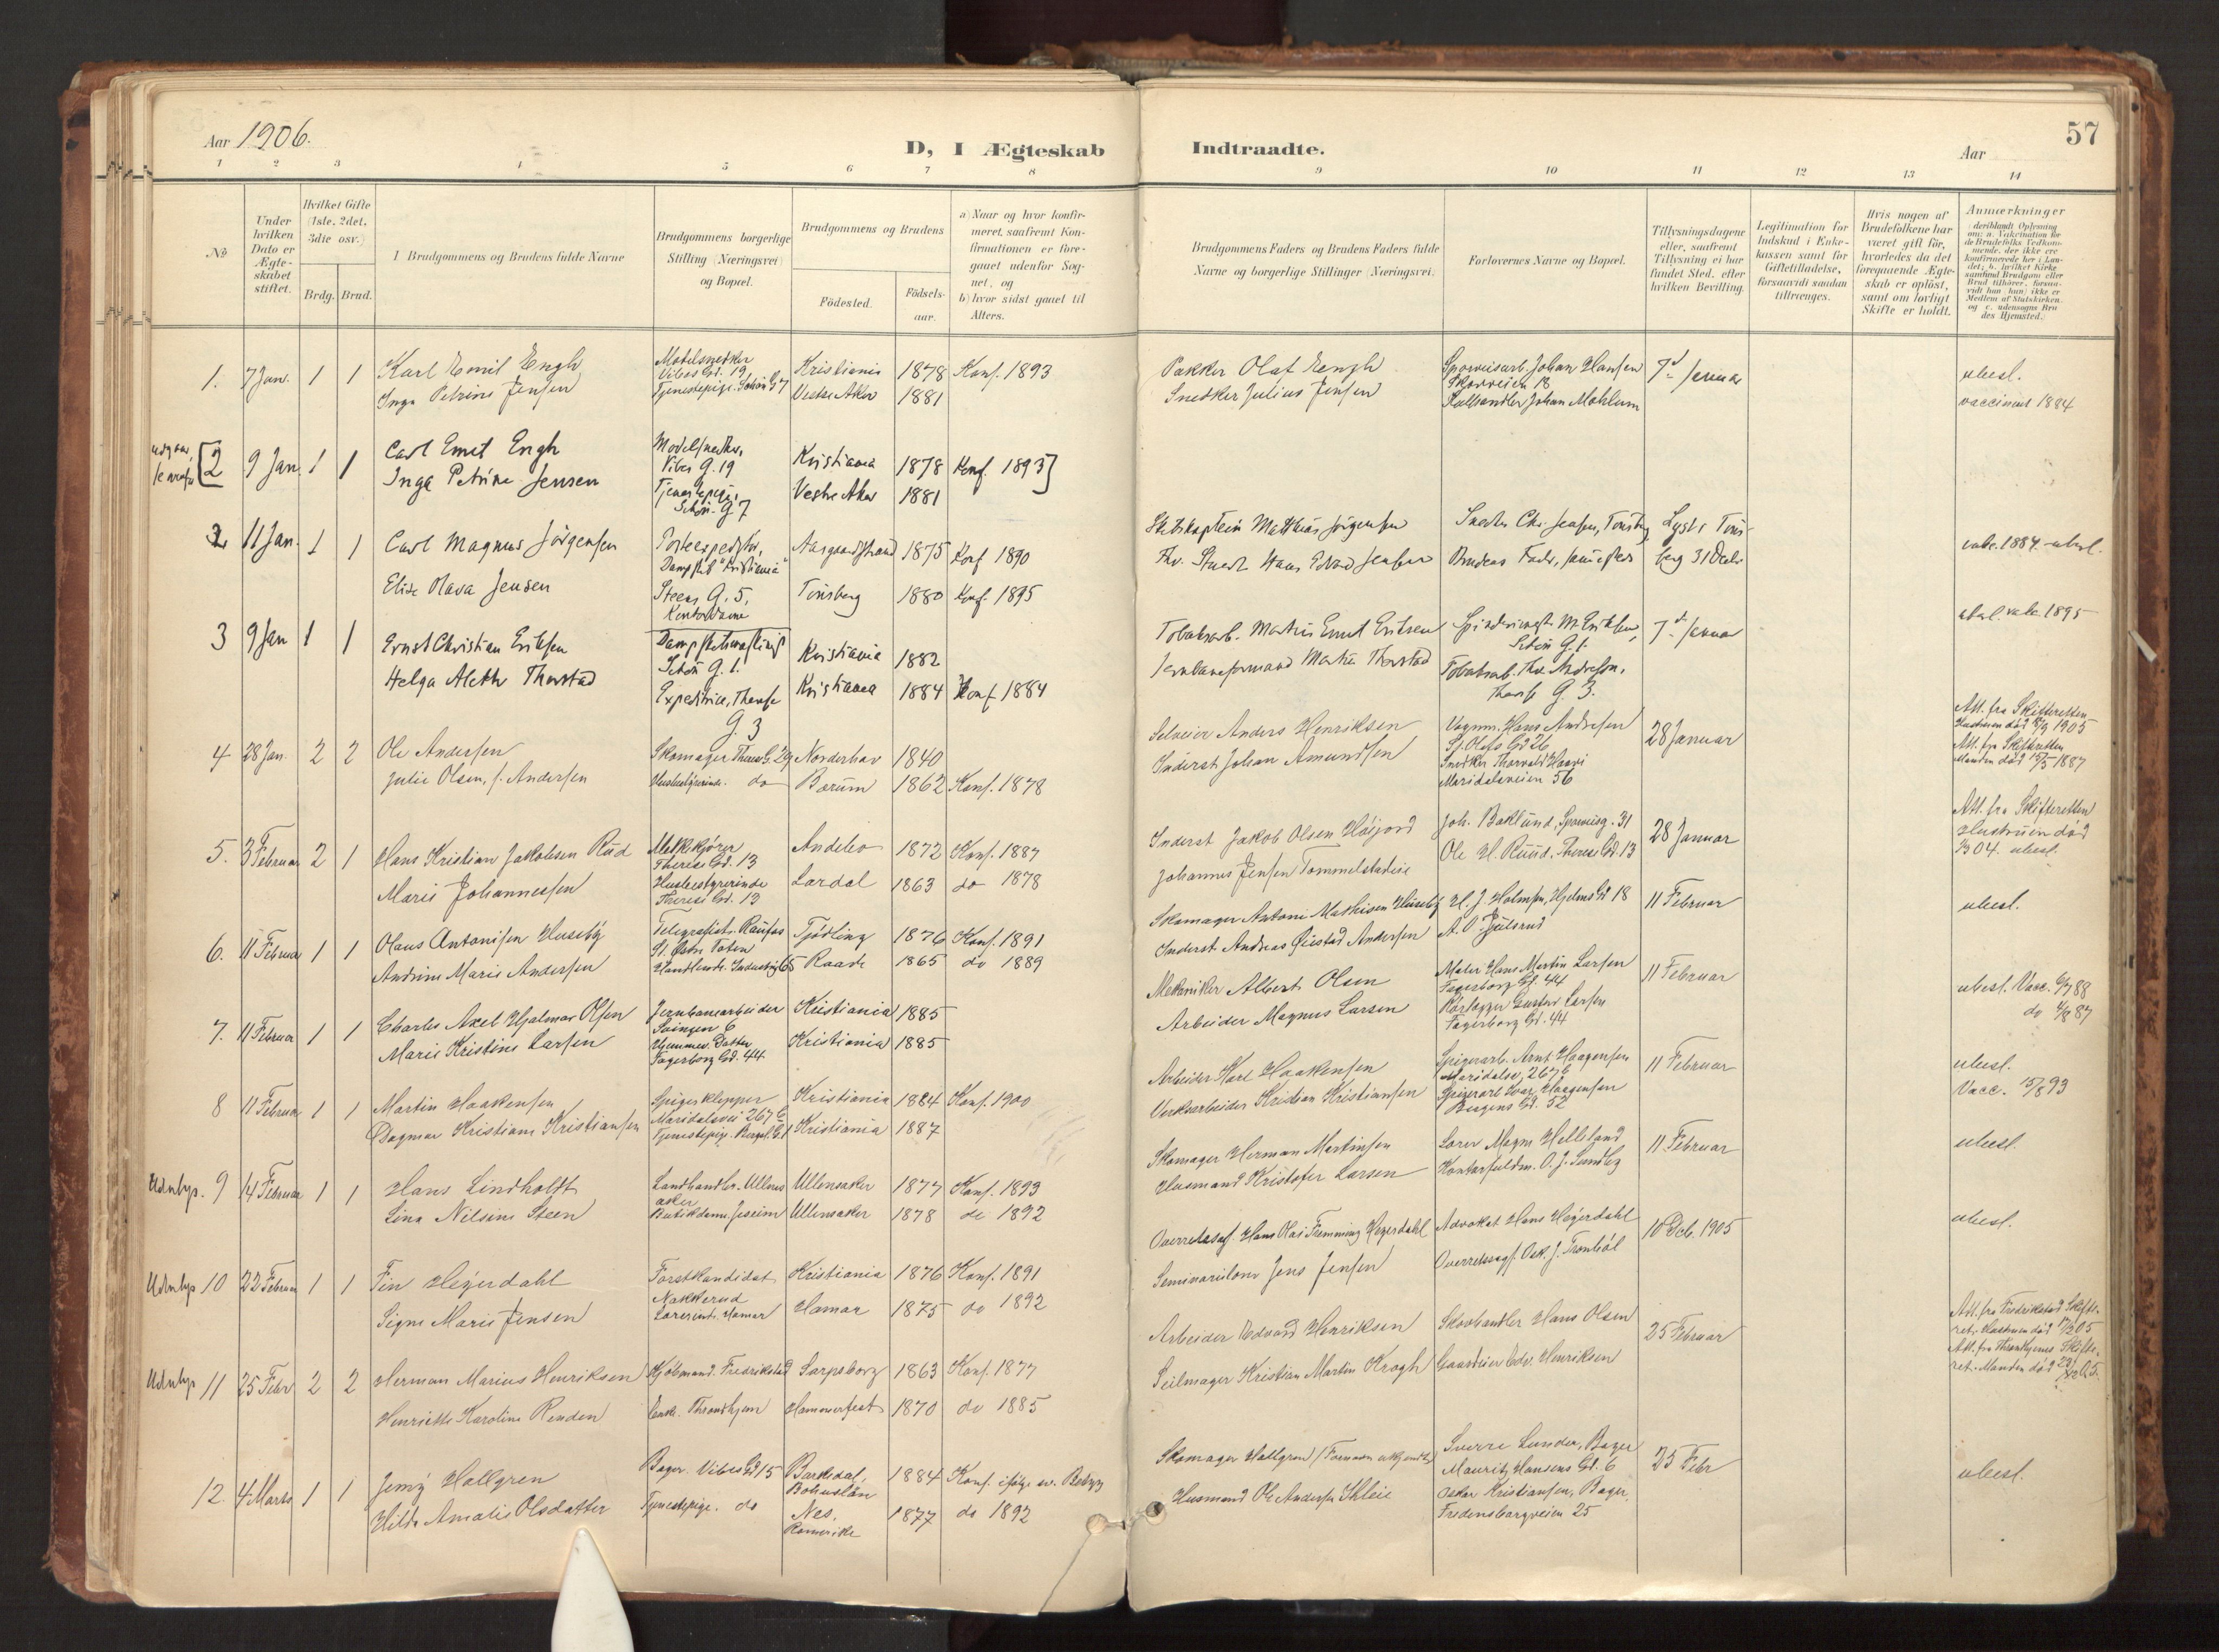 Aar 1906.
D, I Ægteskab
Indtraadte.
Aar
57
1 2 3 4 5 6 7 8
9 10 11 12 13 14
No
Under hvilken Dato er Ægteskabet stiftet.
Hvilket Gifte (1ste, 2det, 3die osv.)
Brdg. Brud.
Brudgommens og Brudens fulde Navne
Brudgommens borgerlige Stilling (Næringsvei) og Bopæl.
Brudgommens og Brudens
Födested.
Födsels-aar.
a) Naar og hvor konfir-
meret, saafremt Kon-
firmationen er fore-
gaaet udenfor Sog-
net, og
b) hvor sidst gaaet til
Alters.
Brudgommens Faders og Brudens Faders fulde
Navne og borgerlige Stillinger (Næringsvei).
Forlovernes Navne og Bopæl.
Tillysningsdagene
eller, saafremt
Tillysning ei har
fundet Sted, efter
hvilken Bevilling.
Legitimation for
Indskud i Enke-
kassen samt for
Giftetilladelse,
forsaavidt saadan
tiltrænges.
Hvis nogen af
Brudefolkene har
været gift för,
hvorledes da det
foregaaende Ægte-
skab er oplöst,
samt om lovligt
Skifte er holdt.
Anmærkninger
1. 7 Jan. 1 1 Karl Emil Engh
Inga Petrine Jensen
Modelsnedker
Vibes Gd. 19
Tjenestepige. Schön G 7
Kristiania 1878 Konf. 1893
Vestre Aker 1881
Pakker Olaf Engh
Snedker Julius Jensen
Sporveisarb. Johan Hansen
Skovveien 18
Kulhandler Johan Mohlum
7d Januar
ubesl.
vaccineret 1884
2 9 Jan. 1 1 Carl Emil Engh
Inga Petrine Jensen
Modelsnedker,
Vibes G. 19
Tjenestepige,
Schön. G 7
Kristiania 1878 Konf. 1893]
Vestre Aker 1881
2 11 Jan. 1 1 Carl Magnus Jörgensen
Elise Olava Jensen
Dampskib "Kristiania"
Steens G. 5,
Kontordame
Aasgaardstrand 1875 Konf 1890
Tönsberg 1880 Konf. 1895
Skibskaptein Matthias Jörgensen
Hans Edvard Jensen
Chr. Jensen, Tönsberg
Brudens Fader, sammesteds
Lyst i Töns-
berg 31 Decbr
vacc. 1884. ubesl.
ubesl. vacc. 1895
3 9 Jan 1 1 Ernst Christian Eriksen
Helga Alethe Thorstad
Schön G. 1.
Expeditrice, Therese
G. 3
Kristiania 1882
Kristiania 1884 Konf 1884
Tobaksarb. Martin Emil Eriksen
Jernbaneformand Martin Thorstad
Schön G. 1.
Tobaksarb. Thv. Andresen,
Therese G. 3.
7d Januar
4 28 Jan. 2 2 Ole Andersen
Julie Olsen, f. Andersen
Skomager Therese G. 29
Husbestyrerinde. do
Norderhov 1840
Bærum 1862 Konf. 1878
Selveier Anders Henriksen
Inderst Johan Amundsen
Vognm. Hans Andresen
St. Olafs Gd 26
Snedker Thorvald Haavi
Maridalsveien 56
28 Januar
Att. fra Skifteretten
Hustruen död 15/9 1905
Att. fra Skifteretten
Manden död 15/5 1887
5. 3 Februar 2 1 Hans Kristian Jakobsen Rüd
Marie Johannessen
Melkekjører
Therese Gd. 13
Husbestyrerinde
Therese Gd. 13
Andebo 1872 Konf. 1887
Lardal 1863 do 1878
Inderst Jakob Olsen Höijord
Johannes Jensen Tommelstadeie
Joh. Baklund, Sporveisg. 31
Ole H. Ruud. Therese Gd. 13
28 Januar
Att. fra Skifteretten
Hustruen död
1904. ubesl.
6. 11 Februar 1 1 Olaus Antonisen Huseby
Andrine Marie Andersen
Telegrafist. Raufos
St. Östre Toten
Handlende. Industrig 65
Tjödling 1876 Konf. 1891
Raade 1865 do 1889
Skomager Antoni Mathisen Huseby
Inderst Andreas Quistad Andersen
H. J. Holmsen, Hjelms Gd 18
A. O. Julsrud
11 Februar
ubesl.
7. 11 Februar 1 1 Charles Axel Hjalmar Olsen
Marie Kristine Larsen
Jernbanearbeider
Svingen 6
Hjemmev. Datter
Fagerborg Gd. 44
Kristiania 1885
Kristiania 1885
Mekaniker Albert Olsen
Arbeider Magnus Larsen
Maler Hans Martin Larsen
Fagerborg Gd. 44
Rörlægger Gustav Larsen
Fagerborg Gd. 44
11 Februar
ubesl. Vacc. 6/7 88
do 4/8 87
8 11 Februar 1 1 Martin Haakensen
Dagmar Kristiane Kristiansen
Spigerklipper
Maridalsvei 267 C
Tjenestepige. Bergsl. G. 1
Kristiania 1884 Konf. 1900
Kristiania 1887
Arbeider Karl Haakensen
Verksarbeider Kristian Kristiansen
Spigerarb. Arnt Haagensen
Maridalsv. 267 C
Spigerarb Ivar Haagensen
Bergens Gd. 52
11 Februar
ubesl.
Vacc. 15/8 93
Udenbys. 9 14 Februar 1 1 Hans Lindholdt
Lina Nilsine Steen
Landhandler. Ullens
aker
Butikdame Jessheim
Ullensaker 1877 Konf. 1893
Ullensaker 1878 do 1892
Skomager Herman Martinsen
Husmand Kristofer Larsen
Lærer Magn. Helleland
Kontorfuldm. O. J. Sundby
11 Februar
ubesl.
Udenbys 10 22 Februar 1 1 Fin Heyerdahl
Signe Marie Jensen
Forstkandidat
Nakkerud
Lærerinde. Hamar
Kristiania 1876 Konf. 1891
Hamar 1875 do 1892
Overretssagf. Hans Olai Flemming Heyerdahl
Seminarielærer Jens Jensen
Advokat Hans Heyerdahl
Overretssagf. Osk. J. Trombøl
10 Dcb. 1905
ubesl.
Udenbys 11 25 Febr 2 2 Herman Marius Henriksen
Henriette Karoline Renden
Kjöbmand. Fredrikstad
Enke. Throndhjem
Sarpsborg 1863 Konf. 1877
Hammerfest 1870 do 1885
Arbeider Edvard Henriksen
Seilmager Kristian Martin Krogh
Skohandler Hans Olsen
Gaardeier Edv. Henriksen
25 Februar
Att. fra Fredrikstad Skifte-
ret. Hustruen död 17/2 05
Att. fra Throndhjems Skifte-
ret. Manden död
12. 4 Marts 1 1 Jemy Hallgren
Hilda Amalie Olsdatter
Bager. Vibes Gd 15
Tjenestepige. do
Barkedal,
Bohuslän
1884 Konf. ifølge sv. Betyg
Nes,
Romerike
1877 do 1892
Skomager Hallgren
Husmand Ole Andersen Skleie
Sverre Lunder, Bager
Mauritz Hansens Gd. 6
Oskar Kristiansen, Bager,
Fredensborgveien 25
25 Febr
ubesl.